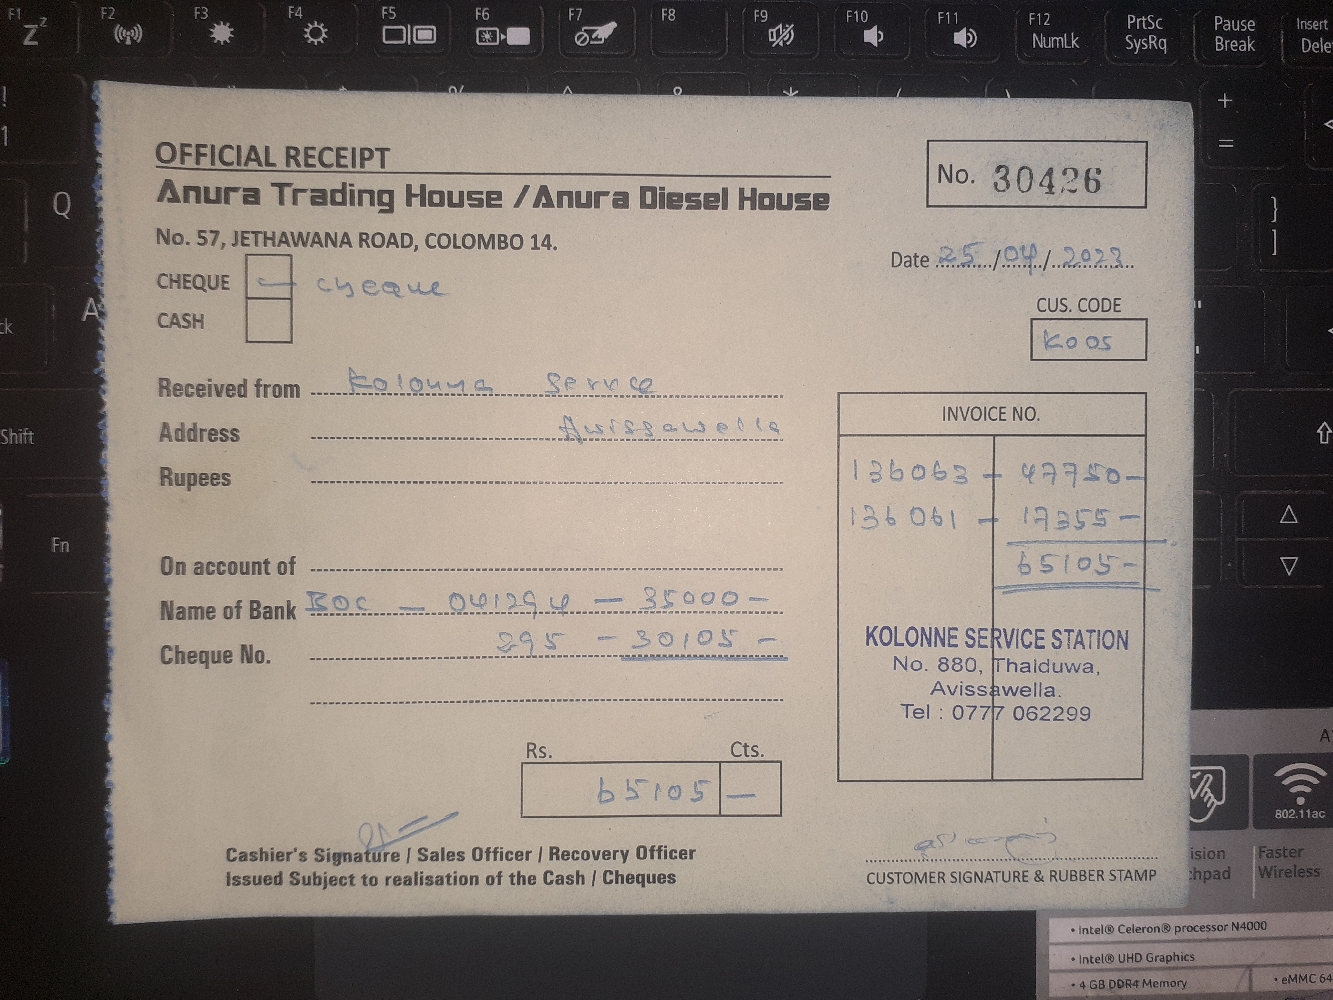 F1 F2 F3 F4 F5 F6 F7 F8 F9 F10 F11 F12 PrtSc Pause Insert
Zz NumLk SysRq Break Dele
! % ^ * ( ) +
1 =
OFFICIAL RECEIPT
Anura Trading House / Anura Diesel House
No. 57, JETHAWANA ROAD, COLOMBO 14.
No. 30426
Date 25/04/2023
CHEQUE — cheque
CASH
CUS. CODE
K005
Received from Kolonna Service
Address Avissawella
Rupees
On account of
Name of Bank BOC — 041294 — 35000 —
Cheque No. 295 — 30105 —
INVOICE NO.
136063 — 47750 —
136061 — 17355 —
65105 —
KOLONNE SERVICE STATION
No. 880, Thalduwa,
Avissawella.
Tel : 0777 062299
Rs. Cts.
65105 —
Cashier's Signature / Sales Officer / Recovery Officer
Issued Subject to realisation of the Cash / Cheques
CUSTOMER SIGNATURE & RUBBER STAMP
Q
}
]
A
Shift
Fn
802.11ac
Faster
Wireless
• Intel® Celeron® processor N4000
• Intel® UHD Graphics
• 4 GB DDR4 Memory
• eMMC 64